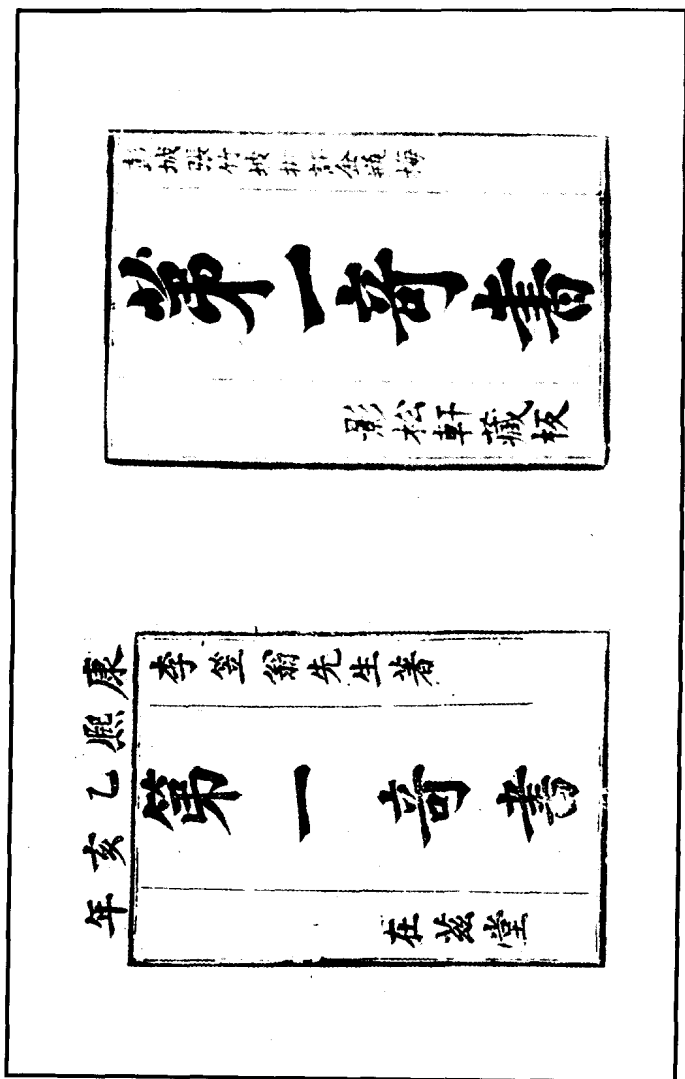 彭城張竹坡批評金瓶梅
第一奇書
影松軒藏板
康熙乙亥年
李笠翁先生著
第一奇書
在茲堂